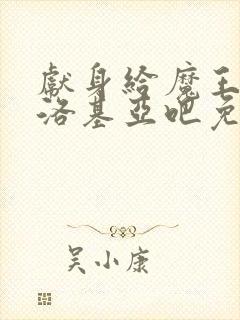 獻身給魔王
洛基亞吧免
吴小康